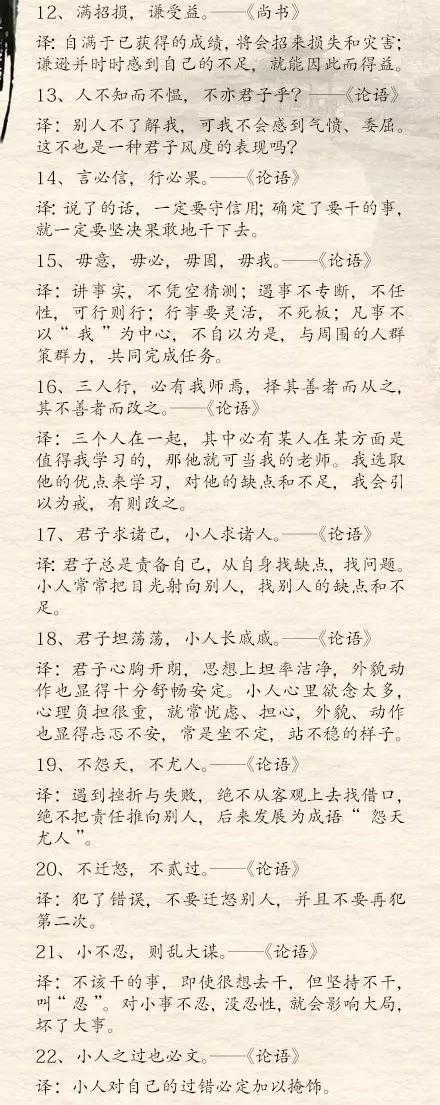 12、满招损，谦受益。——《尚书》
译：自满于已获得的成绩，将会招来损失和灾害；
谦逊并时时感到自己的不足，就能因此而得益。
13、人不知而不愠，不亦君子乎？——《论语》
译：别人不了解我，可我不会感到气愤、委屈。
这不也是一种君子风度的表现吗？
14、言必信，行必果。——《论语》
译：说了的话，一定要守信用；确定了要干的事，
就一定要坚决果敢地干下去。
15、毋意，毋必，毋固，毋我。——《论语》
译：讲事实，不凭空猜测；遇事不专断，不任
性，可行则行；行事要灵活，不死板；凡事不
以“我”为中心，不自以为是，与周围的人群
策群力，共同完成任务。
16、三人行，必有我师焉，择其善者而从之，
其不善者而改之。——《论语》
译：三个人在一起，其中必有某人在某方面是
值得我学习的，那他就可当我的老师。我选取
他的优点来学习，对他的缺点和不足，我会引
以为戒，有则改之。
17、君子求诸己，小人求诸人。——《论语》
译：君子总是责备自己，从自身找缺点，找问题。
小人常常把目光射向别人，找别人的缺点和不
足。
18、君子坦荡荡，小人长戚戚。——《论语》
译：君子心胸开朗，思想上坦率洁净，外貌动
作也显得十分舒畅安定。小人心里欲念太多，
心理负担很重，就常忧虑、担心，外貌、动作
也显得忐忑不安，常是坐不定，站不稳的样子。
19、不怨天，不尤人。——《论语》
译：遇到挫折与失败，绝不从客观上去找借口，
绝不把责任推向别人，后来发展为成语“怨天
尤人”。
20、不迁怒，不贰过。——《论语》
译：犯了错误，不要迁怒别人，并且不要再犯
第二次。
21、小不忍，则乱大谋。——《论语》
译：不该干的事，即使很想去干，但坚持不干，
叫“忍”。对小事不忍，没忍性，就会影响大局，
坏了大事。
22、小人之过也必文。——《论语》
译：小人对自己的过错必定加以掩饰。